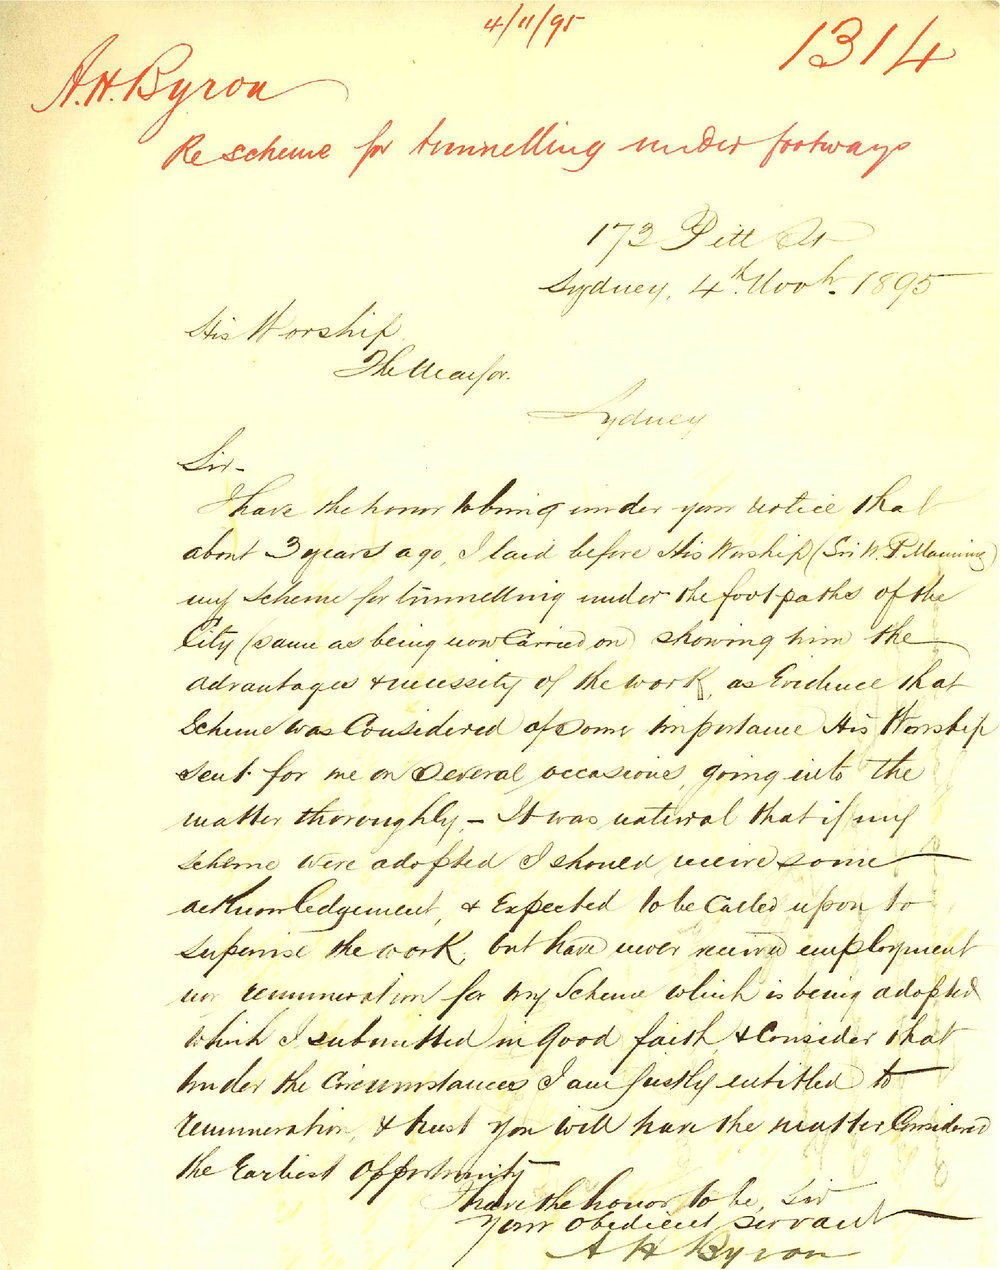 4/11/95
1314
A.H. Byron
Re scheme for tunnelling under footways
173 Pitt St
Sydney, 4th Novbr. 1895
His Worship
The Mayor.
Sydney
Sir-
I have the honor to bring under your notice that
about 3 years ago, I laid before His Worship (Sir W. P. Manning)
my scheme for tunnelling under the foot-paths of the
City (same as being now Carried on) showing him the
advantages & necessity of the work, as Evidence that
Scheme was Considered of some importance His Worship
sent for me on several occasions, going into the
matter thoroughly, - It was natural that if my
scheme were adopted I should receive some
acknowledgement, & Expected to be Called upon to
supervise the work, but have never received employment
nor remuneration for my Scheme which is being adopted
which I submitted in good faith, & Consider that
under the Circumstances I am justly entitled to
remuneration, & trust you will have the matter Considered
the Earliest opportunity
I have the honor to be, Sir
Your obedient servant
A H Byron